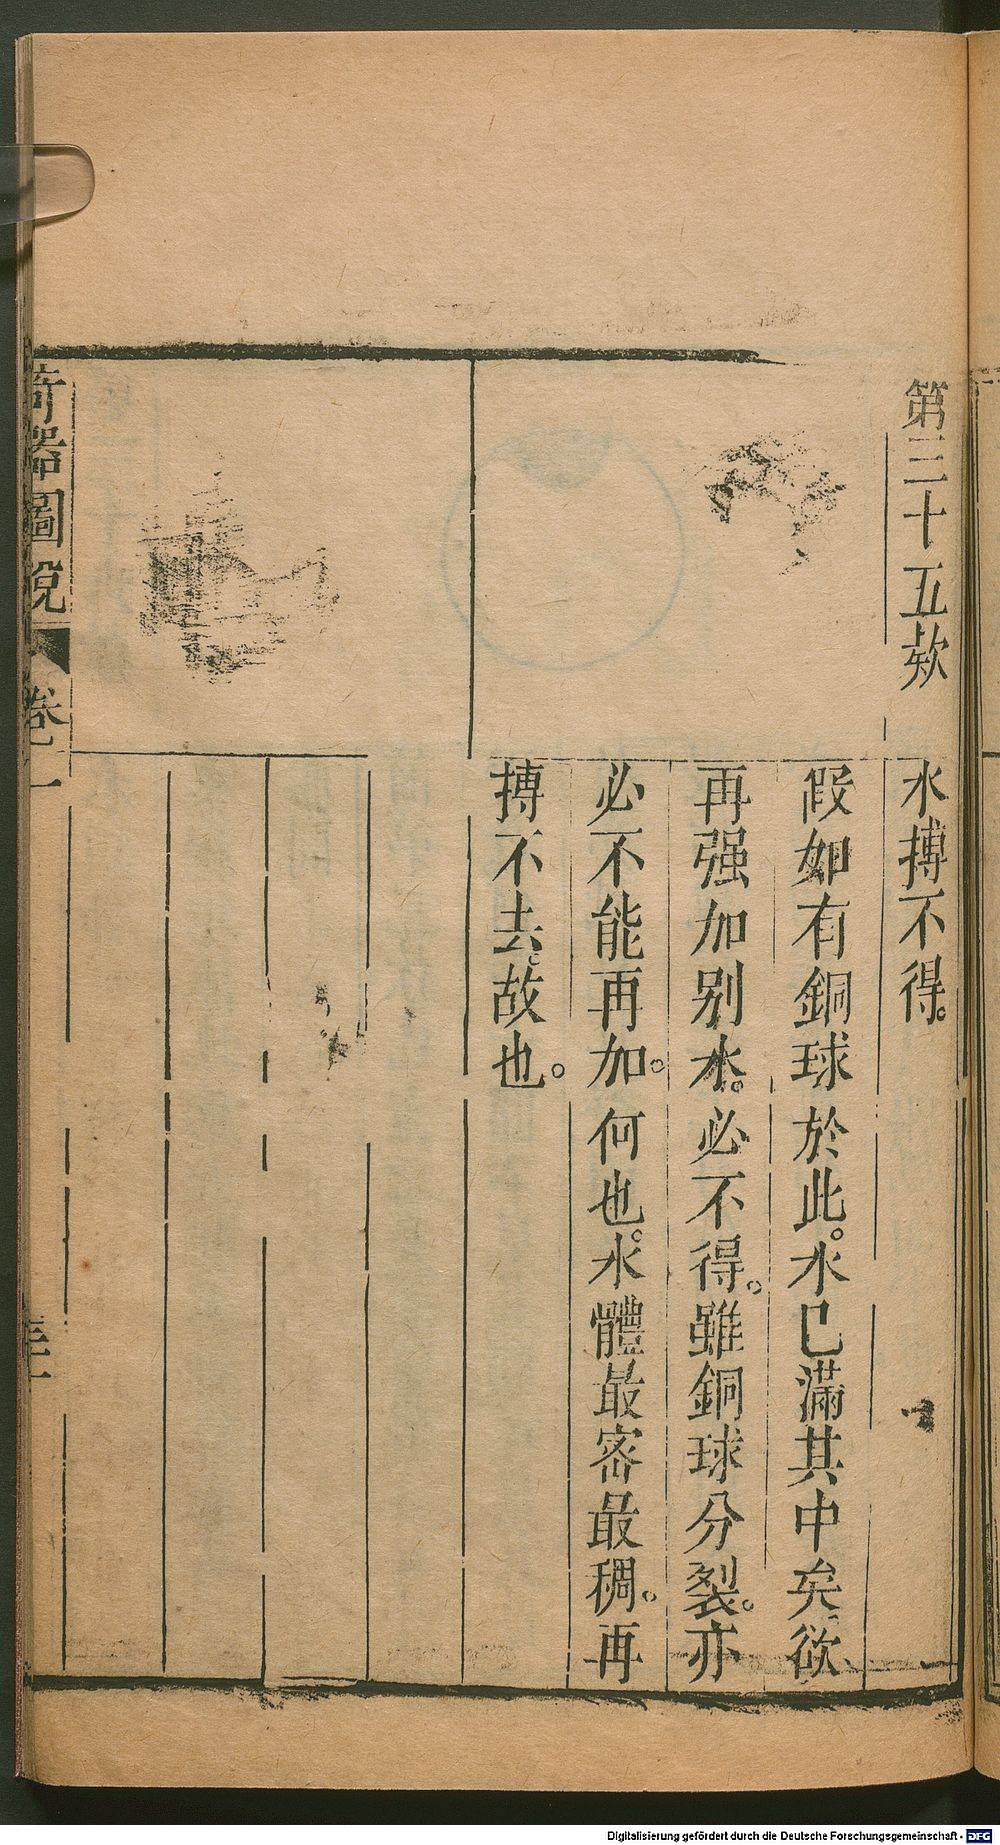 第三十五欵
水搏不得。
假如有銅球於此。水已滿其中矣。欲
再强加别水。必不得。雖銅球分裂。亦
必不能再加。何也。水體最密最稠。再
搏不去。故也。
奇器圖說 卷一
Digitalisierung gefördert durch die Deutsche Forschungsgemeinschaft - DFG